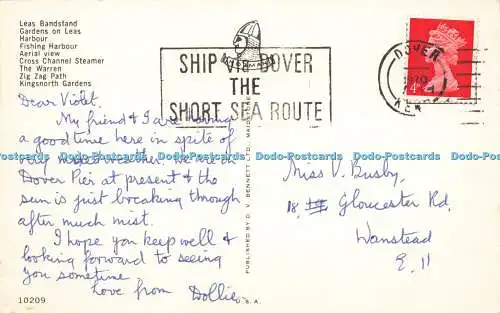 Leas Bandstand
Gardens on Leas
Harbour
Fishing Harbour
Aerial view
Cross Channel Steamer
The Warren
Zig Zag Path
Kingsnorth Gardens
SHIP VIA DOVER
THE
SHORT SEA ROUTE
DOVER
KENT
Dear Violet.
My friend & I are having
a good time here in spite of
very mixed weather. We are on
Dover Pier at present & the
sun is just breaking through
after much mist.
I hope you keep well &
looking forward to seeing
you sometime.
Love from Dollie.
Miss V. Busby,
18, Gloucester Rd.
Wanstead
E. 11
PUBLISHED BY D. V. BENNETT LTD., MAIDSTONE
10209
U.S.A.
Dodo-Postcards Dodo-Postcards Dodo-Postcards Dodo-Postcards Dodo-Postcards Dodo-Postcards